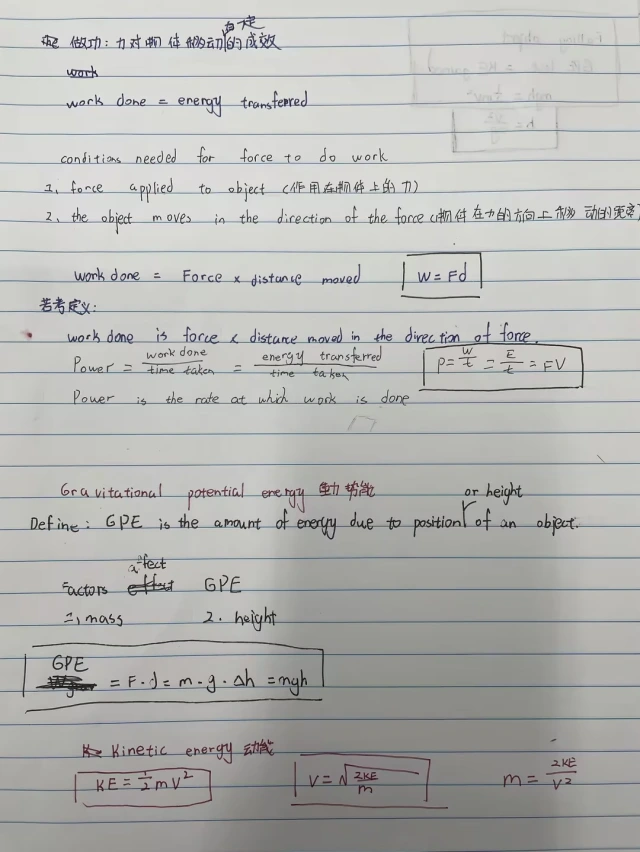 做功: 力对物体移动的成效
work
work done = energy transferred
conditions needed for force to do work
1. force applied to object (作用在物体上的力)
2. the object moves in the direction of the force (物体在力的方向上移动的
work done = Force × distance moved W = Fd
若考定义:
work done is force × distance moved in the direction of force.
Power = work done / time taken = energy transferred / time taken P = W/t = E/t = FV
Power is the rate at which work is done
Gravitational potential energy 势能
or height
Define: GPE is the amount of energy due to position of an object.
affect
Factors effect GPE
1, mass 2. height
GPE
= F·d = m·g·Δh = mgh
Kinetic energy 动能
KE = 1/2 mV² V = √(2KE/m) m = 2KE/V²